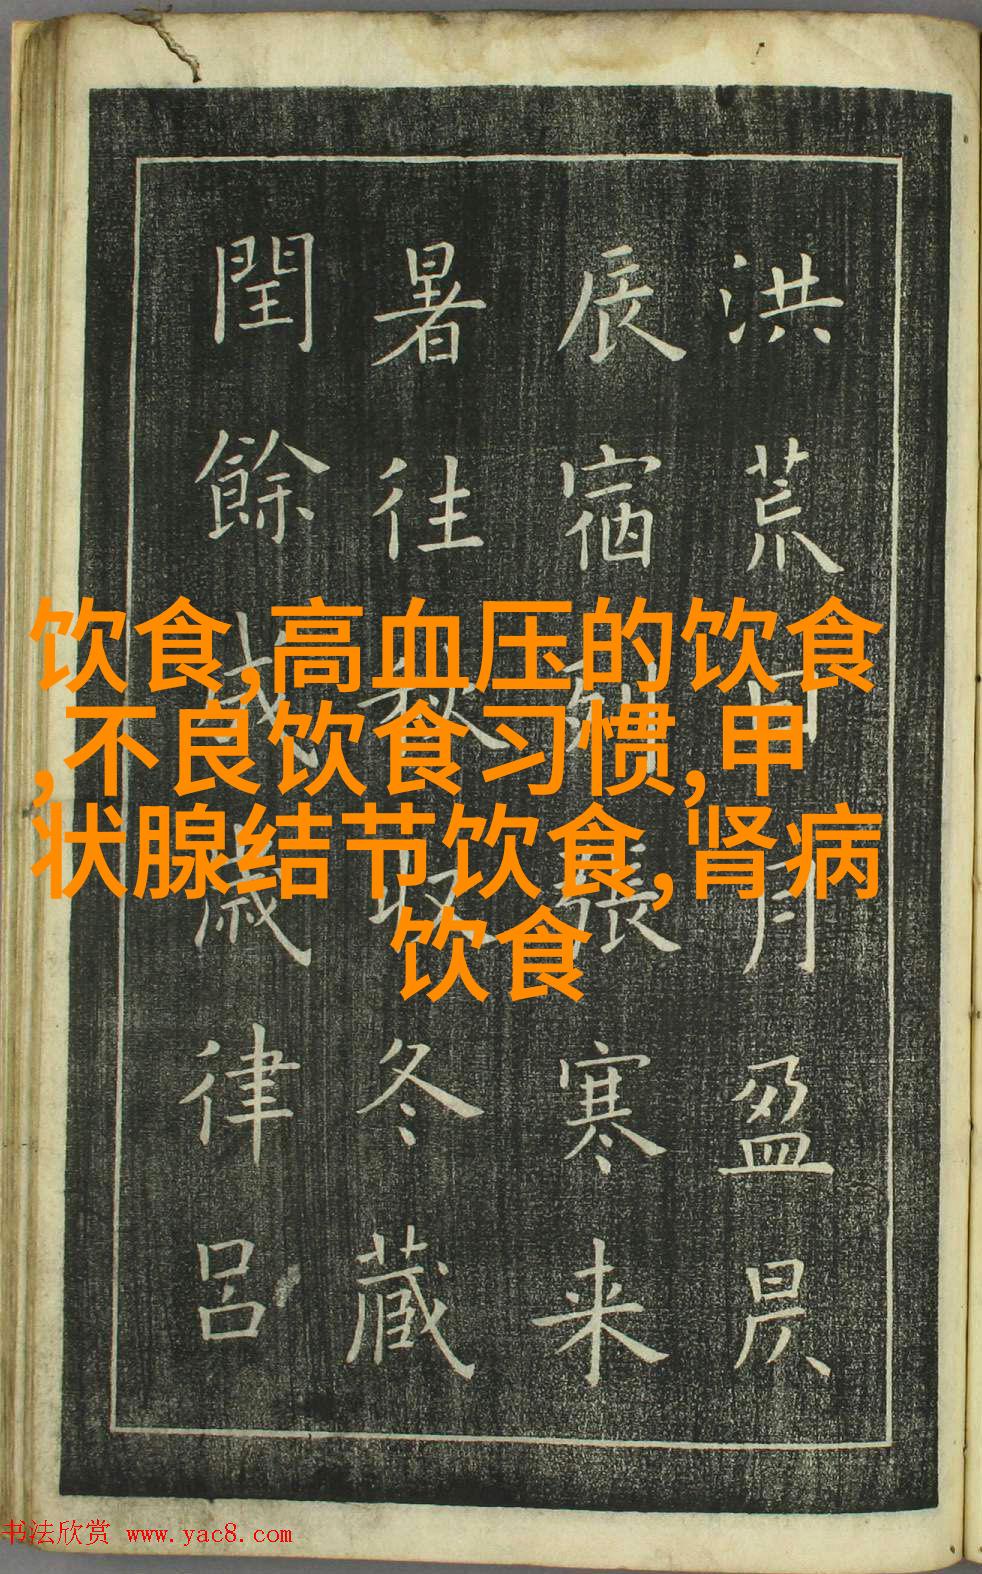 洪荒日月盈昃
辰宿列張寒来
暑往秋收冬藏
閏餘成歲律吕
饮食,高血压的饮食
,不良饮食习惯,甲
状腺结节饮食,肾病
饮食
书法欣赏 www.yac8.com